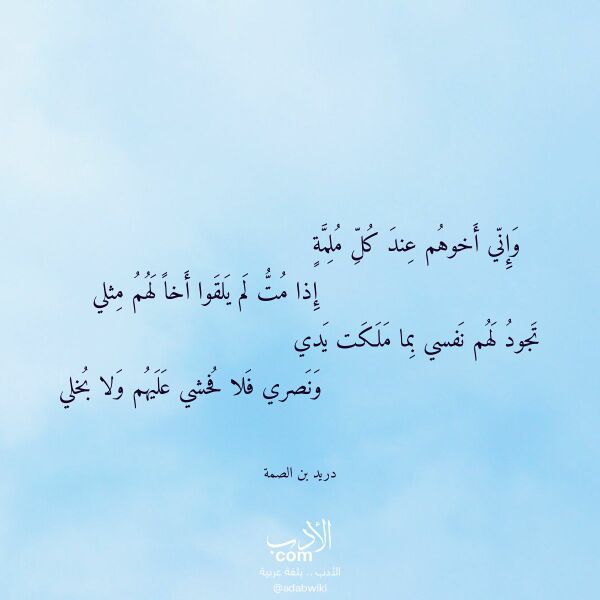 وَإِنّي أَخوهُم عِندَ كُلِّ مُلِمَّةٍ
إِذا مُتُّ لَم يَلقَوا أَخاً لَهُمُ مِثلي
تَجودُ لَهُم نَفسي بِما مَلَكَت يَدي
وَنَصري فَلا فُحشي عَلَيهُم وَلا بُخلي
دريد بن الصمة
الأدب
com
الأدب .. بلغة عربية
@adabwiki